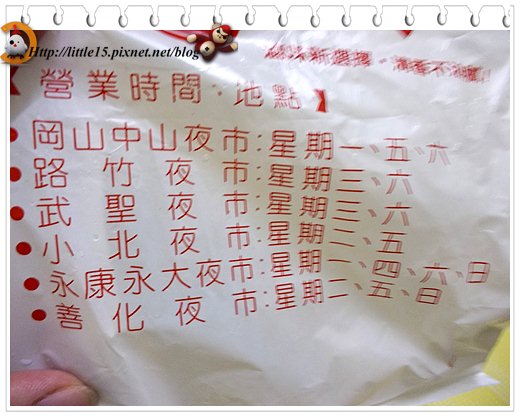 Http://little15.pixnet.net/blog
營業時間·地點】
●岡山中山夜市:星期一、五、六
●路竹夜市:星期三、六
●武聖夜市:星期三、六
●小北夜市:星期二、五
●永康永大夜市:星期一、四、六、日
●善化夜市:星期二、五、日